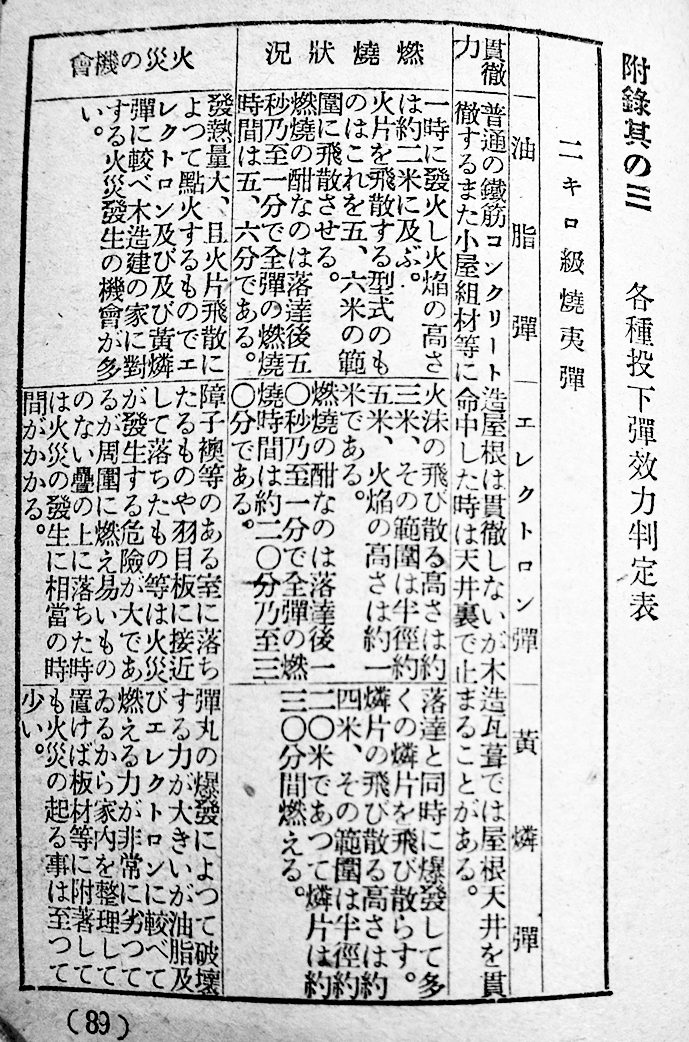 附錄其の三　各種投下彈效力判定表
二キロ級燒夷彈
油脂彈
エレクトロン彈
黃燐彈
貫徹力
普通の鐵筋コンクリート造屋根は貫徹しないが木造瓦葺では屋根天井を貫
徹するまた小屋組材等に命中した時は天井裏で止まることがある。
燃燒狀況
一時に發火し火焰の高さ
は約二米に及ぶ。
火片を飛散する型式のも
のはこれを五、六米の範
圍に飛散させる。
燃燒の酣なのは落達後五
秒乃至一分で全彈の燃燒
時間は五、六分である。
火沫の飛び散る高さは約
三米、その範圍は半徑約
五米、火焰の高さは約一
米である。
燃燒の酣なのは落達後一
〇秒乃至一分で全彈の燃
燒時間は約二〇分乃至三
〇分である。
落達と同時に爆發して多
くの燐片を飛び散らす。
燐片の飛び散る高さは約
四米、その範圍は半徑約
二〇米であつて燐片は約
三〇分間燃える。
火災の機會
發熱量大、且火片飛散に
よつて點火するものでエ
レクトロン及び及び黃燐
彈に較べ木造建の家に對
する火災發生の機會が多
い。
障子襖等のある室に落ち
たるものや羽目板に接近
して落ちたもの等は火災
が發生する危險が大であ
るが周圍に燃え易いもの
のない疊の上に落ちた時
は火災の發生に相當の時
間がかかる。
彈丸の爆發によつて破壞
する力が大きいが油脂及
びエレクトロンに較べて
燃える力が非常に劣つて
ゐるから家內を整理して
置けば板材等に附著して
も火災の起る事は至つて
少い。
(89)